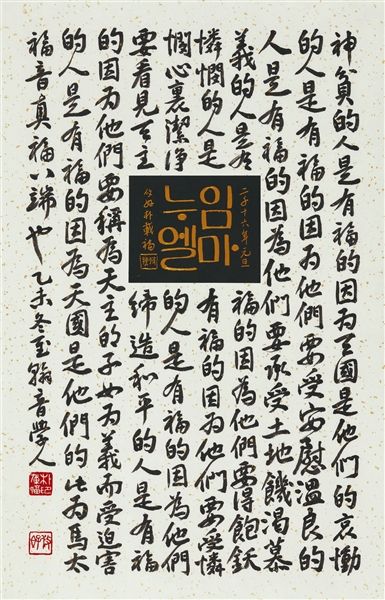 神貧的人是有福的因為天國是他們的哀慟
的人是有福的因為他們要受安慰溫良的
人是有福的因為他們要承受土地饑渴慕
義的人是有
福的因為他們要得飽飫
憐憫的人是
有福的因為他們要受憐
憫心裏潔淨
的人是有福的因為他們
要看見天主
締造和平的人是有福
的因為他們要稱為天主的子女為義而受迫害
的人是有福的因為天國是他們的此為馬太
福音真福八端也乙未冬至翰音學人
二千十六年元旦
임마
누엘